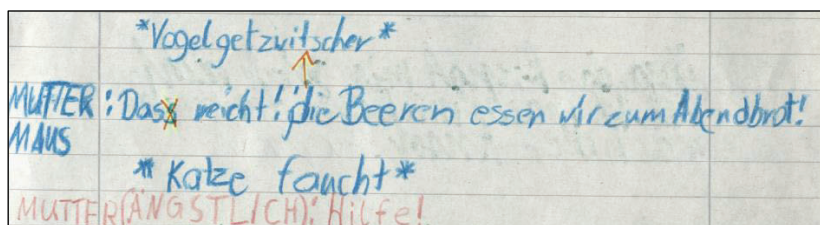 *Vogelgetzwitscher*
MUTTER : Das reicht! die Beeren essen wir zum Abendbrot!
MAUS
*Katze faucht*
MUTTER(ÄNGSTLICH): Hilfe!